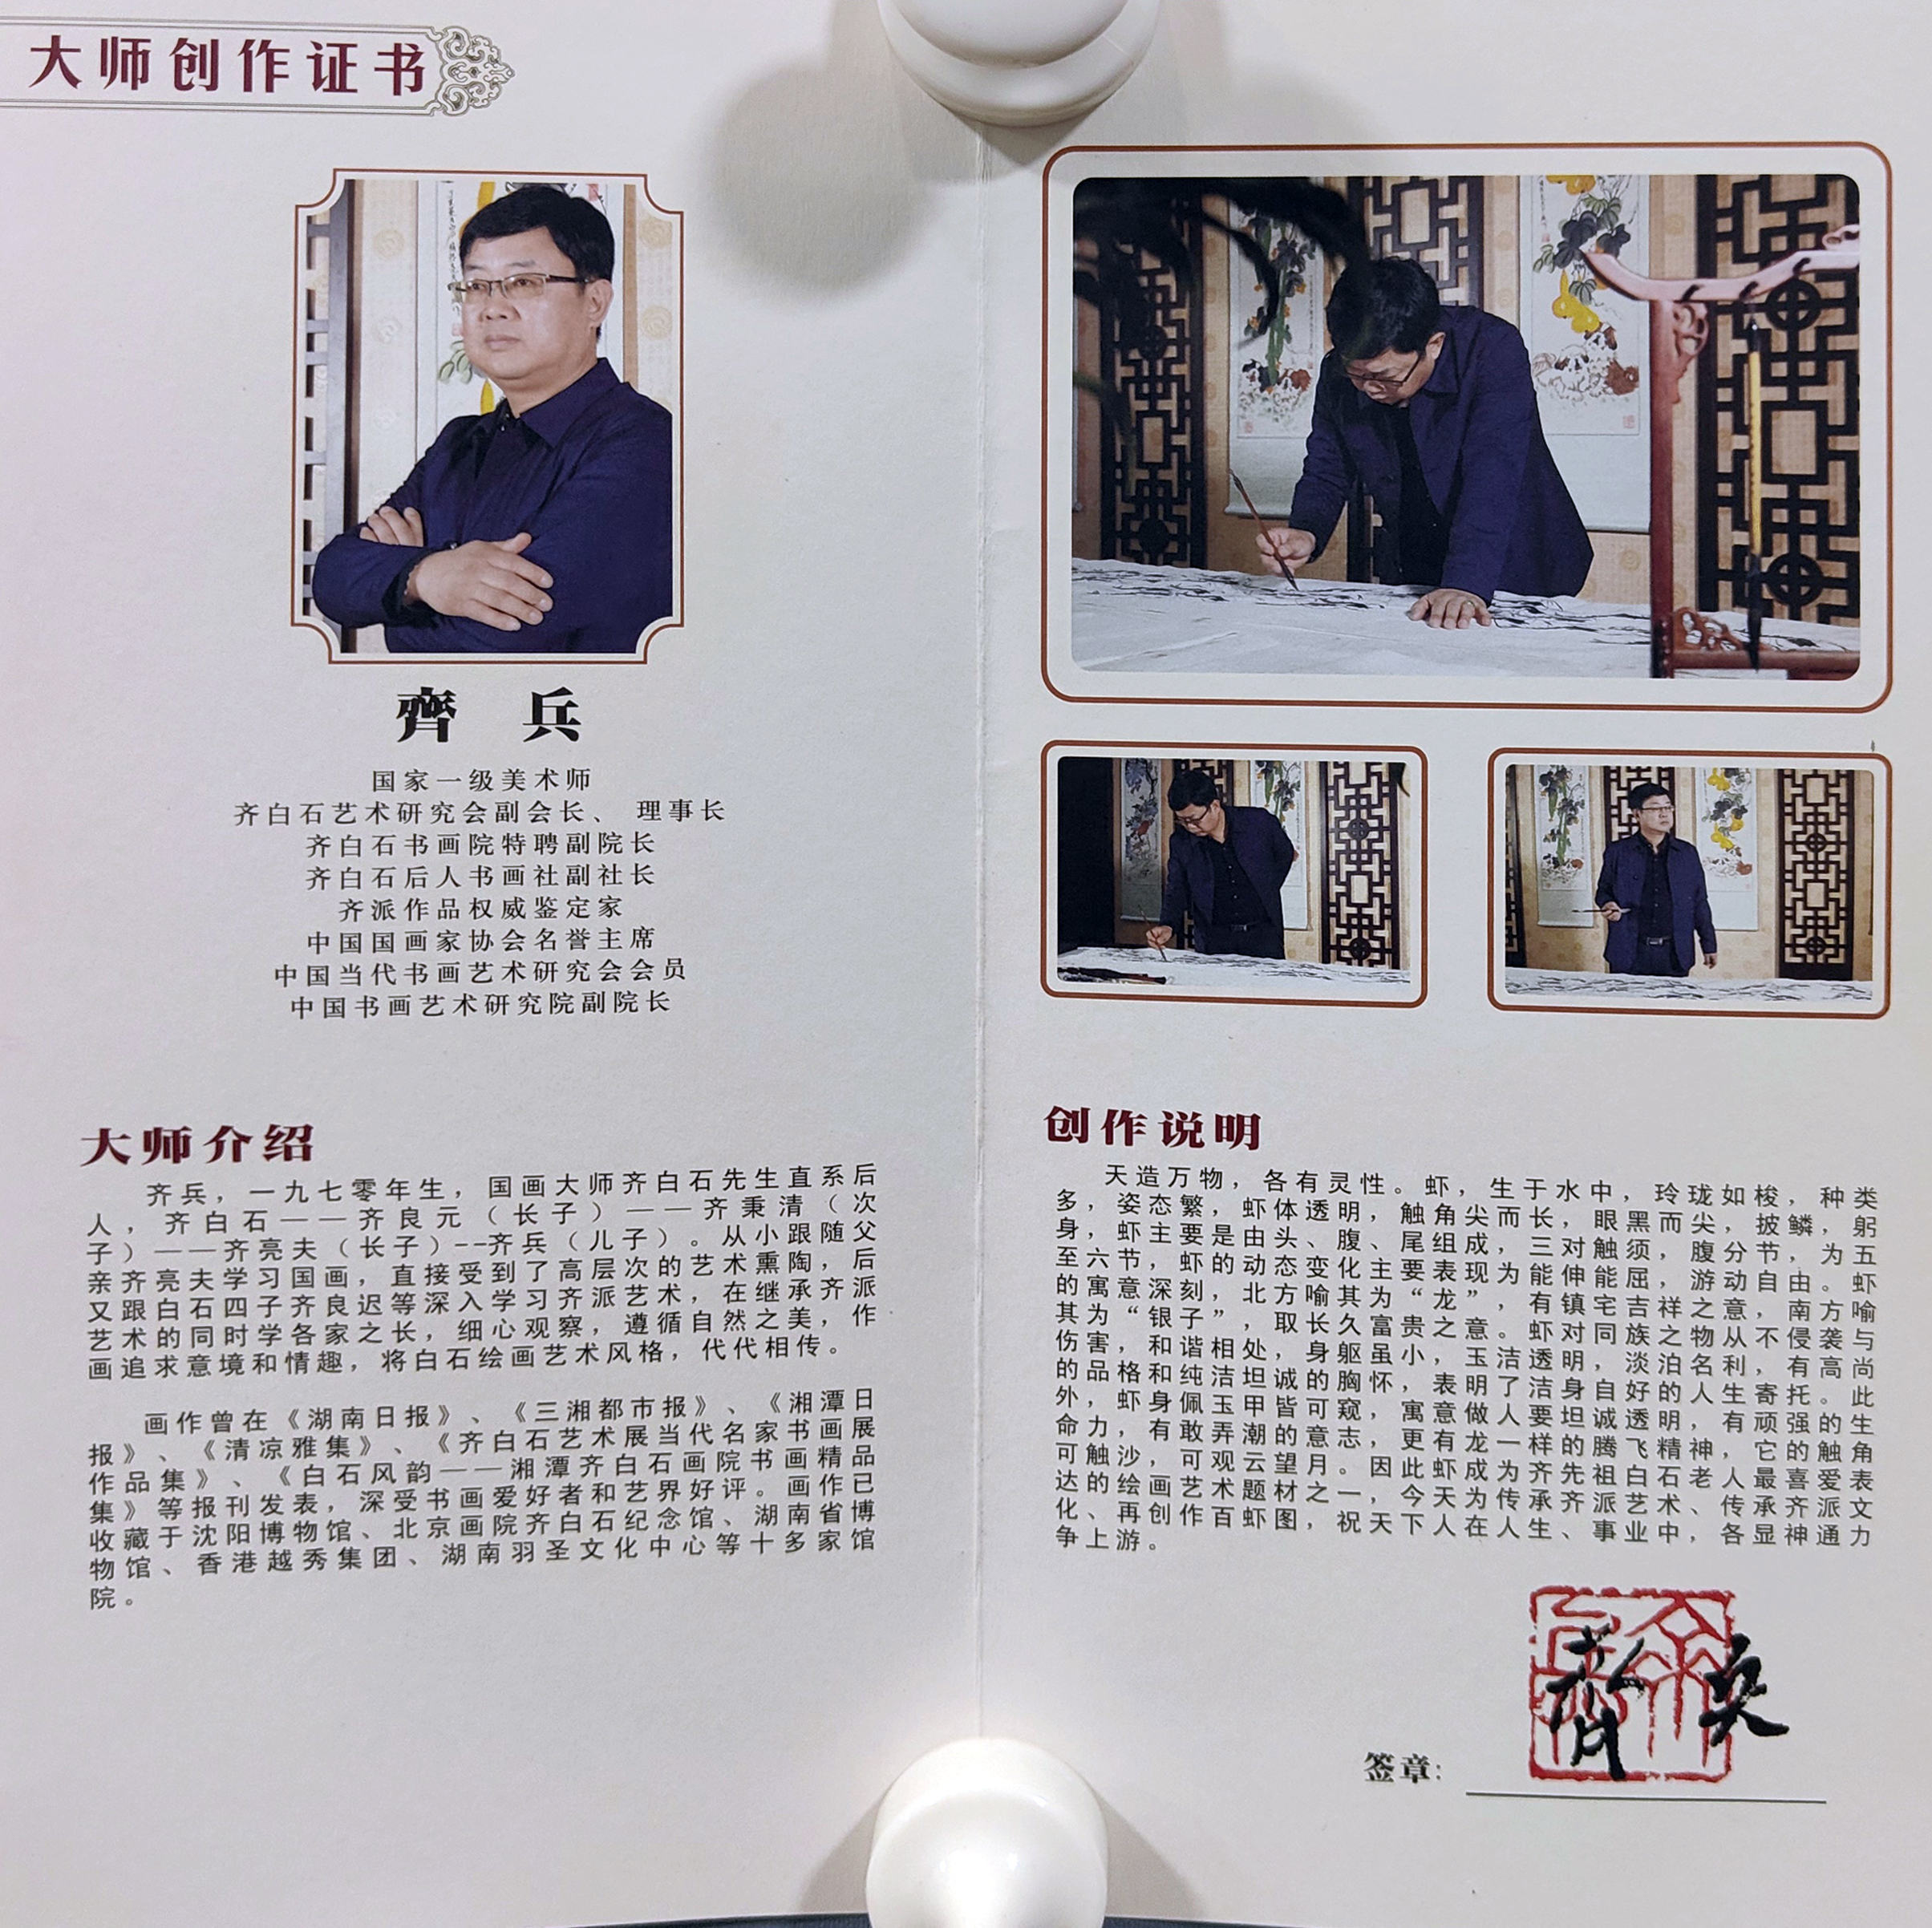 大师创作证书
齊 兵
国家一级美术师
齐白石艺术研究会副会长、 理事长
齐白石书画院特聘副院长
齐白石后人书画社副社长
齐派作品权威鉴定家
中国国画家协会名誉主席
中国当代书画艺术研究会会员
中国书画艺术研究院副院长
大师介绍
齐兵，一九七零年生，国画大师齐白石先生直系后
人，齐白石——齐良元（长子）——齐秉清（次
子）——齐亮夫（长子）--齐兵（儿子）。从小跟随父
亲齐亮夫学习国画，直接受到了高层次的艺术熏陶，后
又跟白石四子齐良迟等深入学习齐派艺术，在继承齐派
艺术的同时学各家之长，细心观察，遵循自然之美，作
画追求意境和情趣，将白石绘画艺术风格，代代相传。
画作曾在《湖南日报》、《三湘都市报》、《湘潭日
报》、《清凉雅集》、《齐白石艺术展当代名家书画展
作品集》、《白石风韵——湘潭齐白石画院书画精品
集》等报刊发表，深受书画爱好者和艺界好评。画作已
收藏于沈阳博物馆、北京画院齐白石纪念馆、湖南省博
物馆、香港越秀集团、湖南羽圣文化中心等十多家馆
院。
创作说明
天造万物，各有灵性。虾，生于水中，玲珑如梭，种类
多，姿态繁，虾体透明，触角尖而长，眼黑而尖，披鳞，躬
身，虾主要是由头、腹、尾组成，三对触须，腹分节，为五
至六节，虾的动态变化主要表现为能伸能屈，游动自由。虾
的寓意深刻，北方喻其为“龙”，有镇宅吉祥之意，南方喻
其为“银子”，取长久富贵之意。虾对同族之物从不侵袭与
伤害，和谐相处，身躯虽小，玉洁透明，淡泊名利，有高尚
的品格和纯洁坦诚的胸怀，表明了洁身自好的人生寄托。此
外，虾身佩玉甲皆可窥，寓意做人要坦诚透明，有顽强的生
命力，有敢弄潮的意志，更有龙一样的腾飞精神，它的触角
可触沙，可观云望月。因此虾成为齐先祖白石老人最喜爱表
达的绘画艺术题材之一，今天为传承齐派艺术、传承齐派文
化、再创作百虾图，祝天下人在人生、事业中，各显神通力
争上游。
签章: